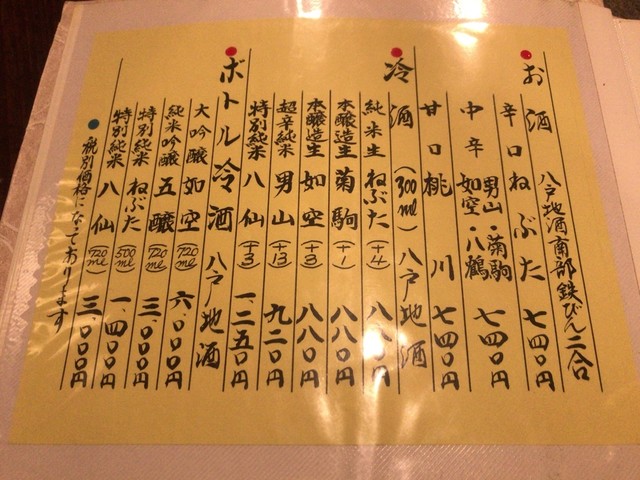 お酒 八戸地酒南部鉄びん二合
辛口 ねぶた 七四〇円
中辛 男山・菊駒 如空・八鶴 七四〇円
甘口 桃川 七四〇円
冷酒 (300ml) 八戸地酒
純米生 ねぶた (+4) 八八〇円
本醸造生 菊駒 (+1) 八八〇円
本醸造生 如空 (+3) 八八〇円
超辛純米 男山 (+13) 九二〇円
特別純米 八仙 (+3) 一、二五〇円
ボトル冷酒 八戸地酒
大吟醸 如空 (720ml) 六、〇〇〇円
純米吟醸 五醸 (720ml) 三、〇〇〇円
特別純米 ねぶた (500ml) 一、四〇〇円
特別純米 八仙 (720ml) 三、〇〇〇円
税別価格になっております